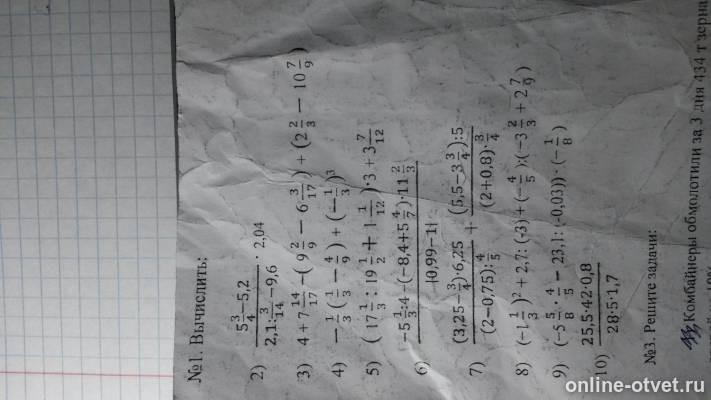 №1. Вычислить:
2) (5 3/4 − 5,2)/(2,1 : 3/14 − 9,6) · 2,04
3) 4 + 7 14/17 − (9 2/9 − 6 3/17) + (2 2/3 − 10 7/9)
4) − 1/3 (1/3 − 4/9) + (− 1/3)³
5) (17 1/3 : 19 1/2 + 1 1/12) · 3 + 3 7/12
6) (−5 1/3 : 4 − (−8,4 + 5 4/7) · 11 2/3)/|0,99 − 1|
7) ((3,25 − 3/4) · 6,25)/((2 − 0,75) : 4/5) + ((5,5 − 3 3/4) : 5)/((2 + 0,8) · 3/4)
8) (−1 1/3)² + 2,7 : (-3) + (− 4/5) : (−3 2/3 + 2 7/9)
9) (−5 5/8 · 4/5 − 23,1 : (-0,03)) · (− 1/8)
10) (25,5·42·0,8)/(28·5·1,7)
№3. Решите задачи:
Комбайнеры обмолотили за 3 дня 434 т зерна
online-otvet.ru